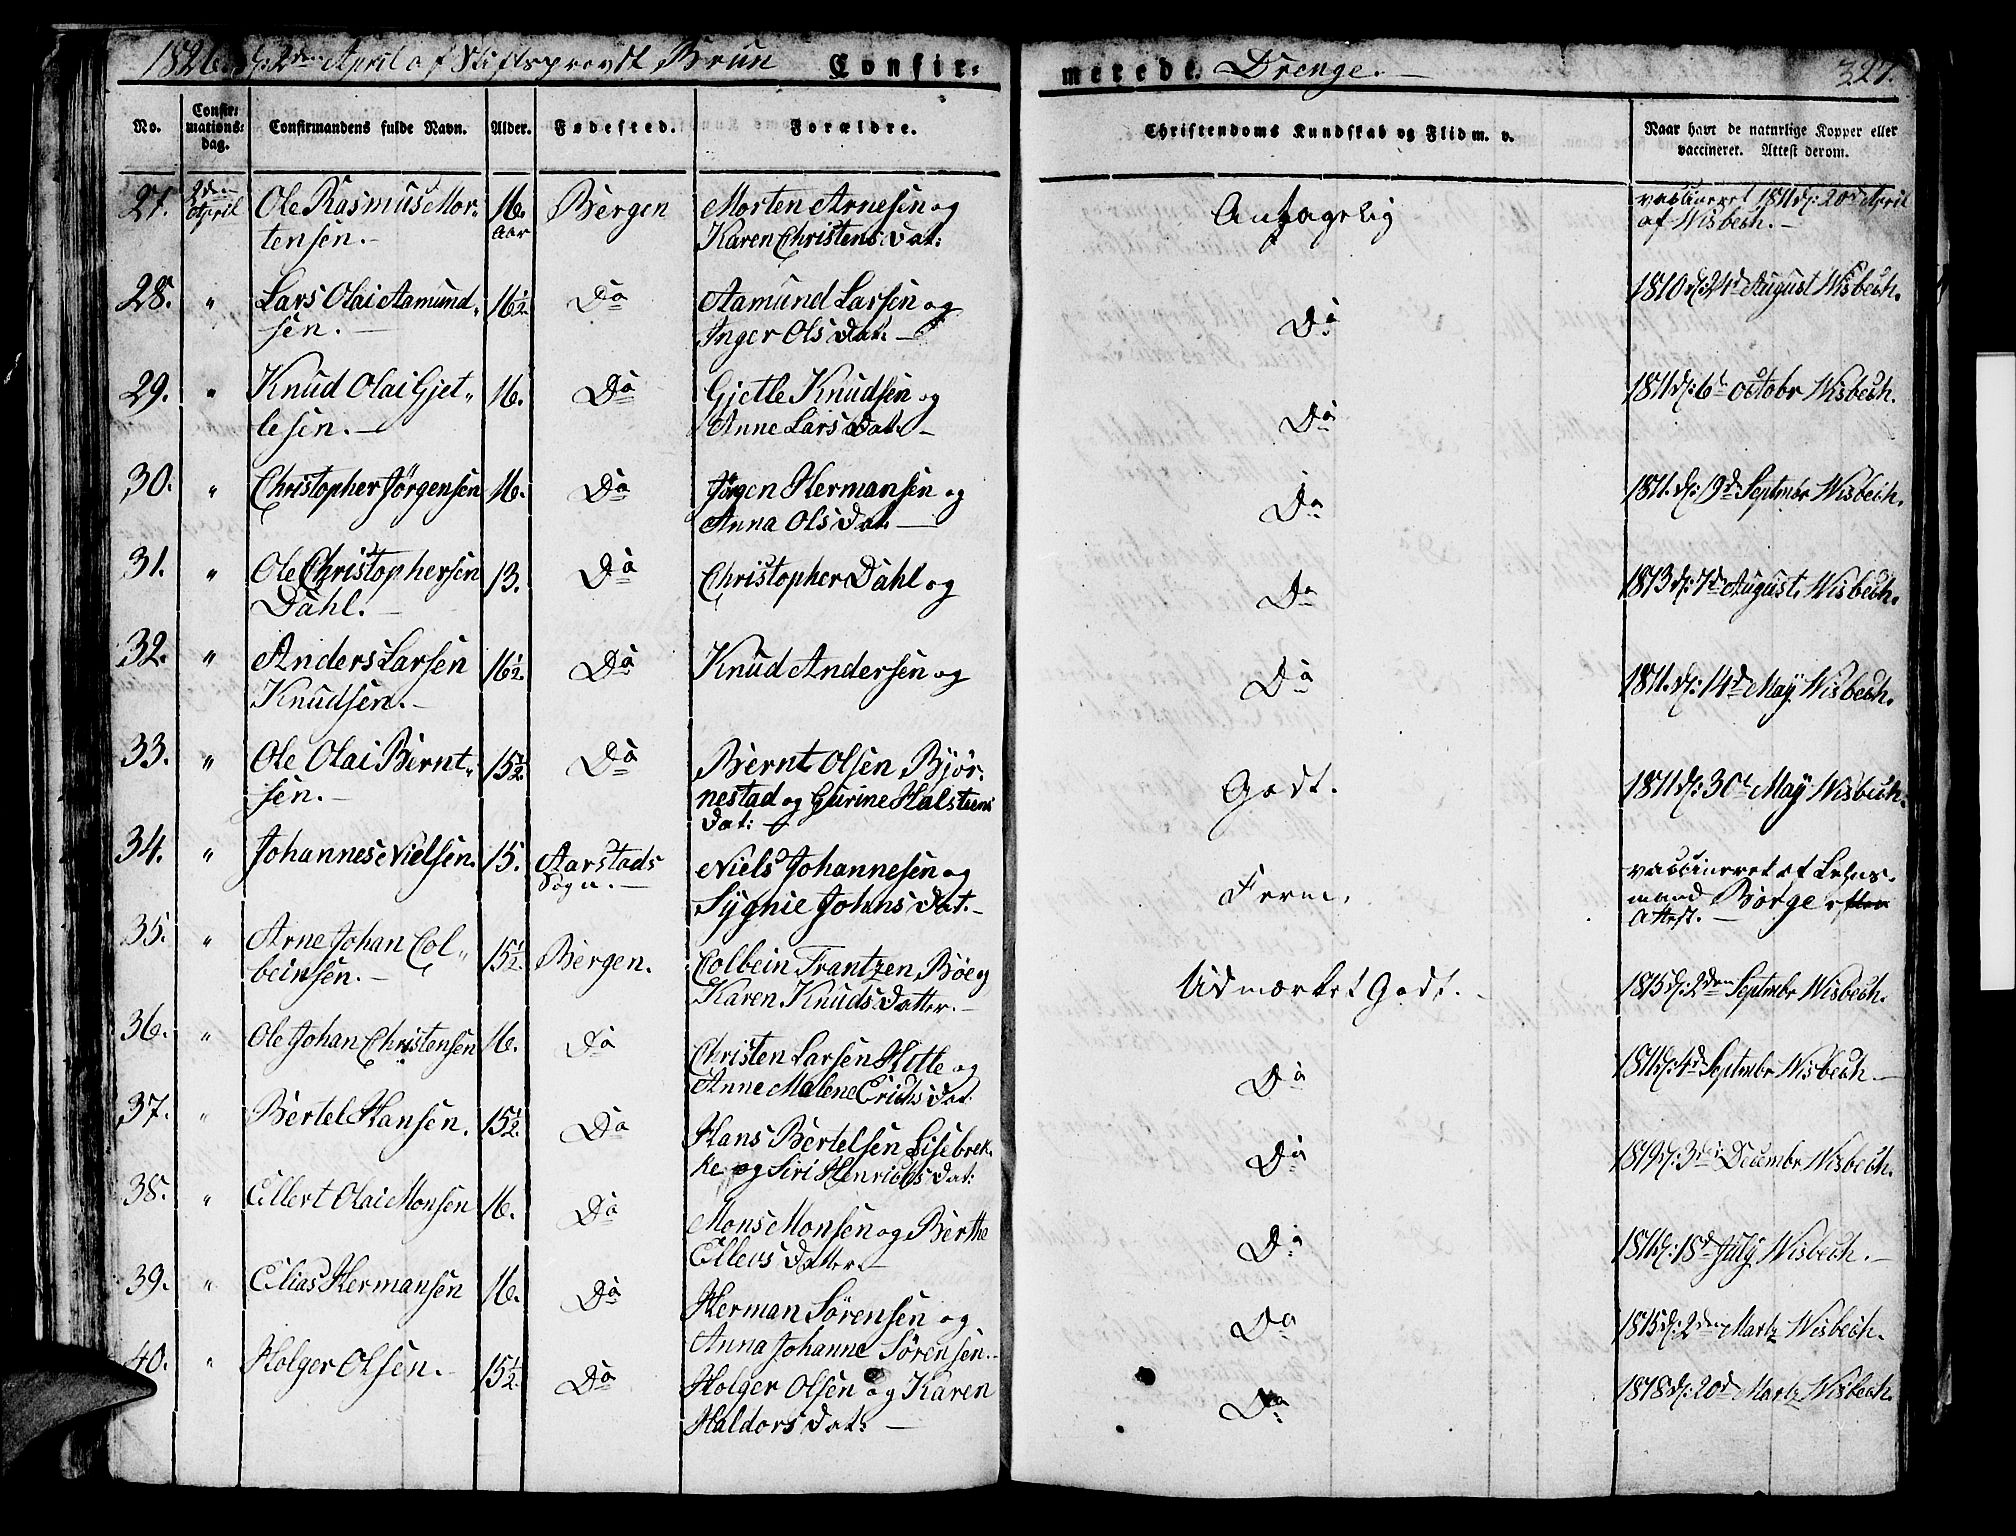 1826. d: 2den April af Stiftsprovst Brun Confir-
merede Drenge. 327.
No. Confir-mations-dag. Confirmandens fulde Navn. Alder. Fødested. Forældre. Christendoms Kundskab og Flid m. v. Naar havt de naturlige Kopper eller vaccineret. Attest derom.
27. 2den April Ole Rasmus Mor- 16. Bergen Morten Arnesen og Antagelig vaccineret 1811 d: 20d April
tensen. Aar Karen Christens Dat: af Wisbech.
28. " Lars Olai Aamund- 16½. Do Aamund Larsen og Do 1810 d: 24d August Wisbech.
sen. Inger Ols Dat:
29. " Knud Olai Gjet- 16. Do Gjetle Knudsen og Do 1811 d: 6t octobr Wisbech.
lesen. Anne Lars Dat.
30. " Christopher Jörgensen 16. Do Jörgen Hermansen og Do 1811. d: 19d Septmbr Wisbech.
Anna Ols Dat.
31. " Ole Christophersen 13. Do Christopher Dahl og Do 1813 d: 7d August. Wisbech.
Dahl.
32. " Anders Larsen 16½. Do Knud Andersen og Do 1811. d: 14d May Wisbech.
Knudsen.
33. " Ole Olai Bernt- 15½. Do Bernt Olsen Björ- Godt. 1811 d: 30t May Wisbech.
sen. nestad og Gurine Halstens
Dat:
34. " Johannes Nielsen. 15. Aarstads Niels Johannesen og Ferm. vaccineret af Lehns-
Sogn. Sygnie Johns Dat. mand Börge efter
Attest.
35. " Arne Johan Col- 15½. Bergen. Colbein Frantzen Böe og Udmærket Godt. 1815 d: 2den Septmbr Wisbech.
beinsen. Karen Knuds Datter.
36. " Ole Johan Christensen 16. Do Christen Larsen Hitle og Do 1811 d: 4d Septmbr Wisbech
Anne Malene Erichs Dat.
37. " Bertel Hansen. 15½. Do Hans Bertelsen Lisebrek- Do 1819 d: 3die Decembr Wisbech.
ke og Siri Henrichs Dat:
38. " Ellert Olai Monsen 16. Do Mons Monsen og Berthe Do 1811 d: 18d July Wisbech.
Ellevs Datter
39. " Elias Hermansen 16. Do Herman Sörensen og Do 1815 d: 2den Martz Wisbech.
Anna Johanne Sörensen.
40. " Holger Olsen. 15½. Do Holger Olsen og Karen Do 1818 d: 20d Martz Wisbech.
Haldors Dat: